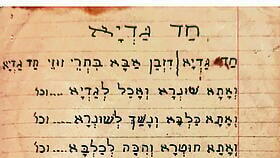 חַד גַדְיָא
חַד גַדְיָא דִזְבַן אַבָּא בִּתְרֵי זוּזֵי חַד גַדְיָא
וְאָתָא שׁוּנְרָא וְאָכַל לְגַדְיָא .... וכו
וְאָתָא כַּלְבָּא וְנָשַׁךְ לְשׁוּנְרָא .... וכו
וְאָתָא חוּטְרָא וְהִכָּה לְכַלְבָּא .. וכו